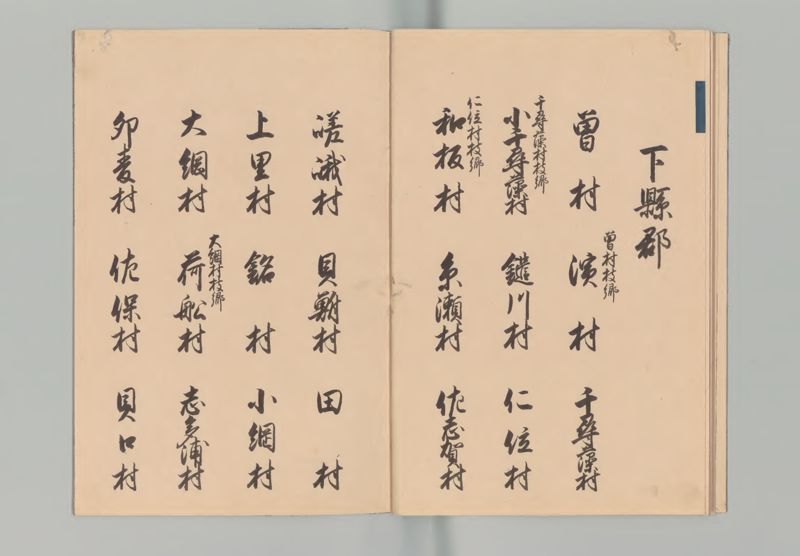 下縣郡
曽村
曽村枝郷
濱村
千尋藻村
千尋藻村枝郷
小千尋藻村
鑓川村
仁位村
仁位村枝郷
和板村
糸瀬村
佐志賀村
嵯峨村
貝鮒村
田村
上里村
銘村
小綱村
大綱村
大綱村枝郷
荷舩村
志多浦村
卯麦村
佐保村
貝口村